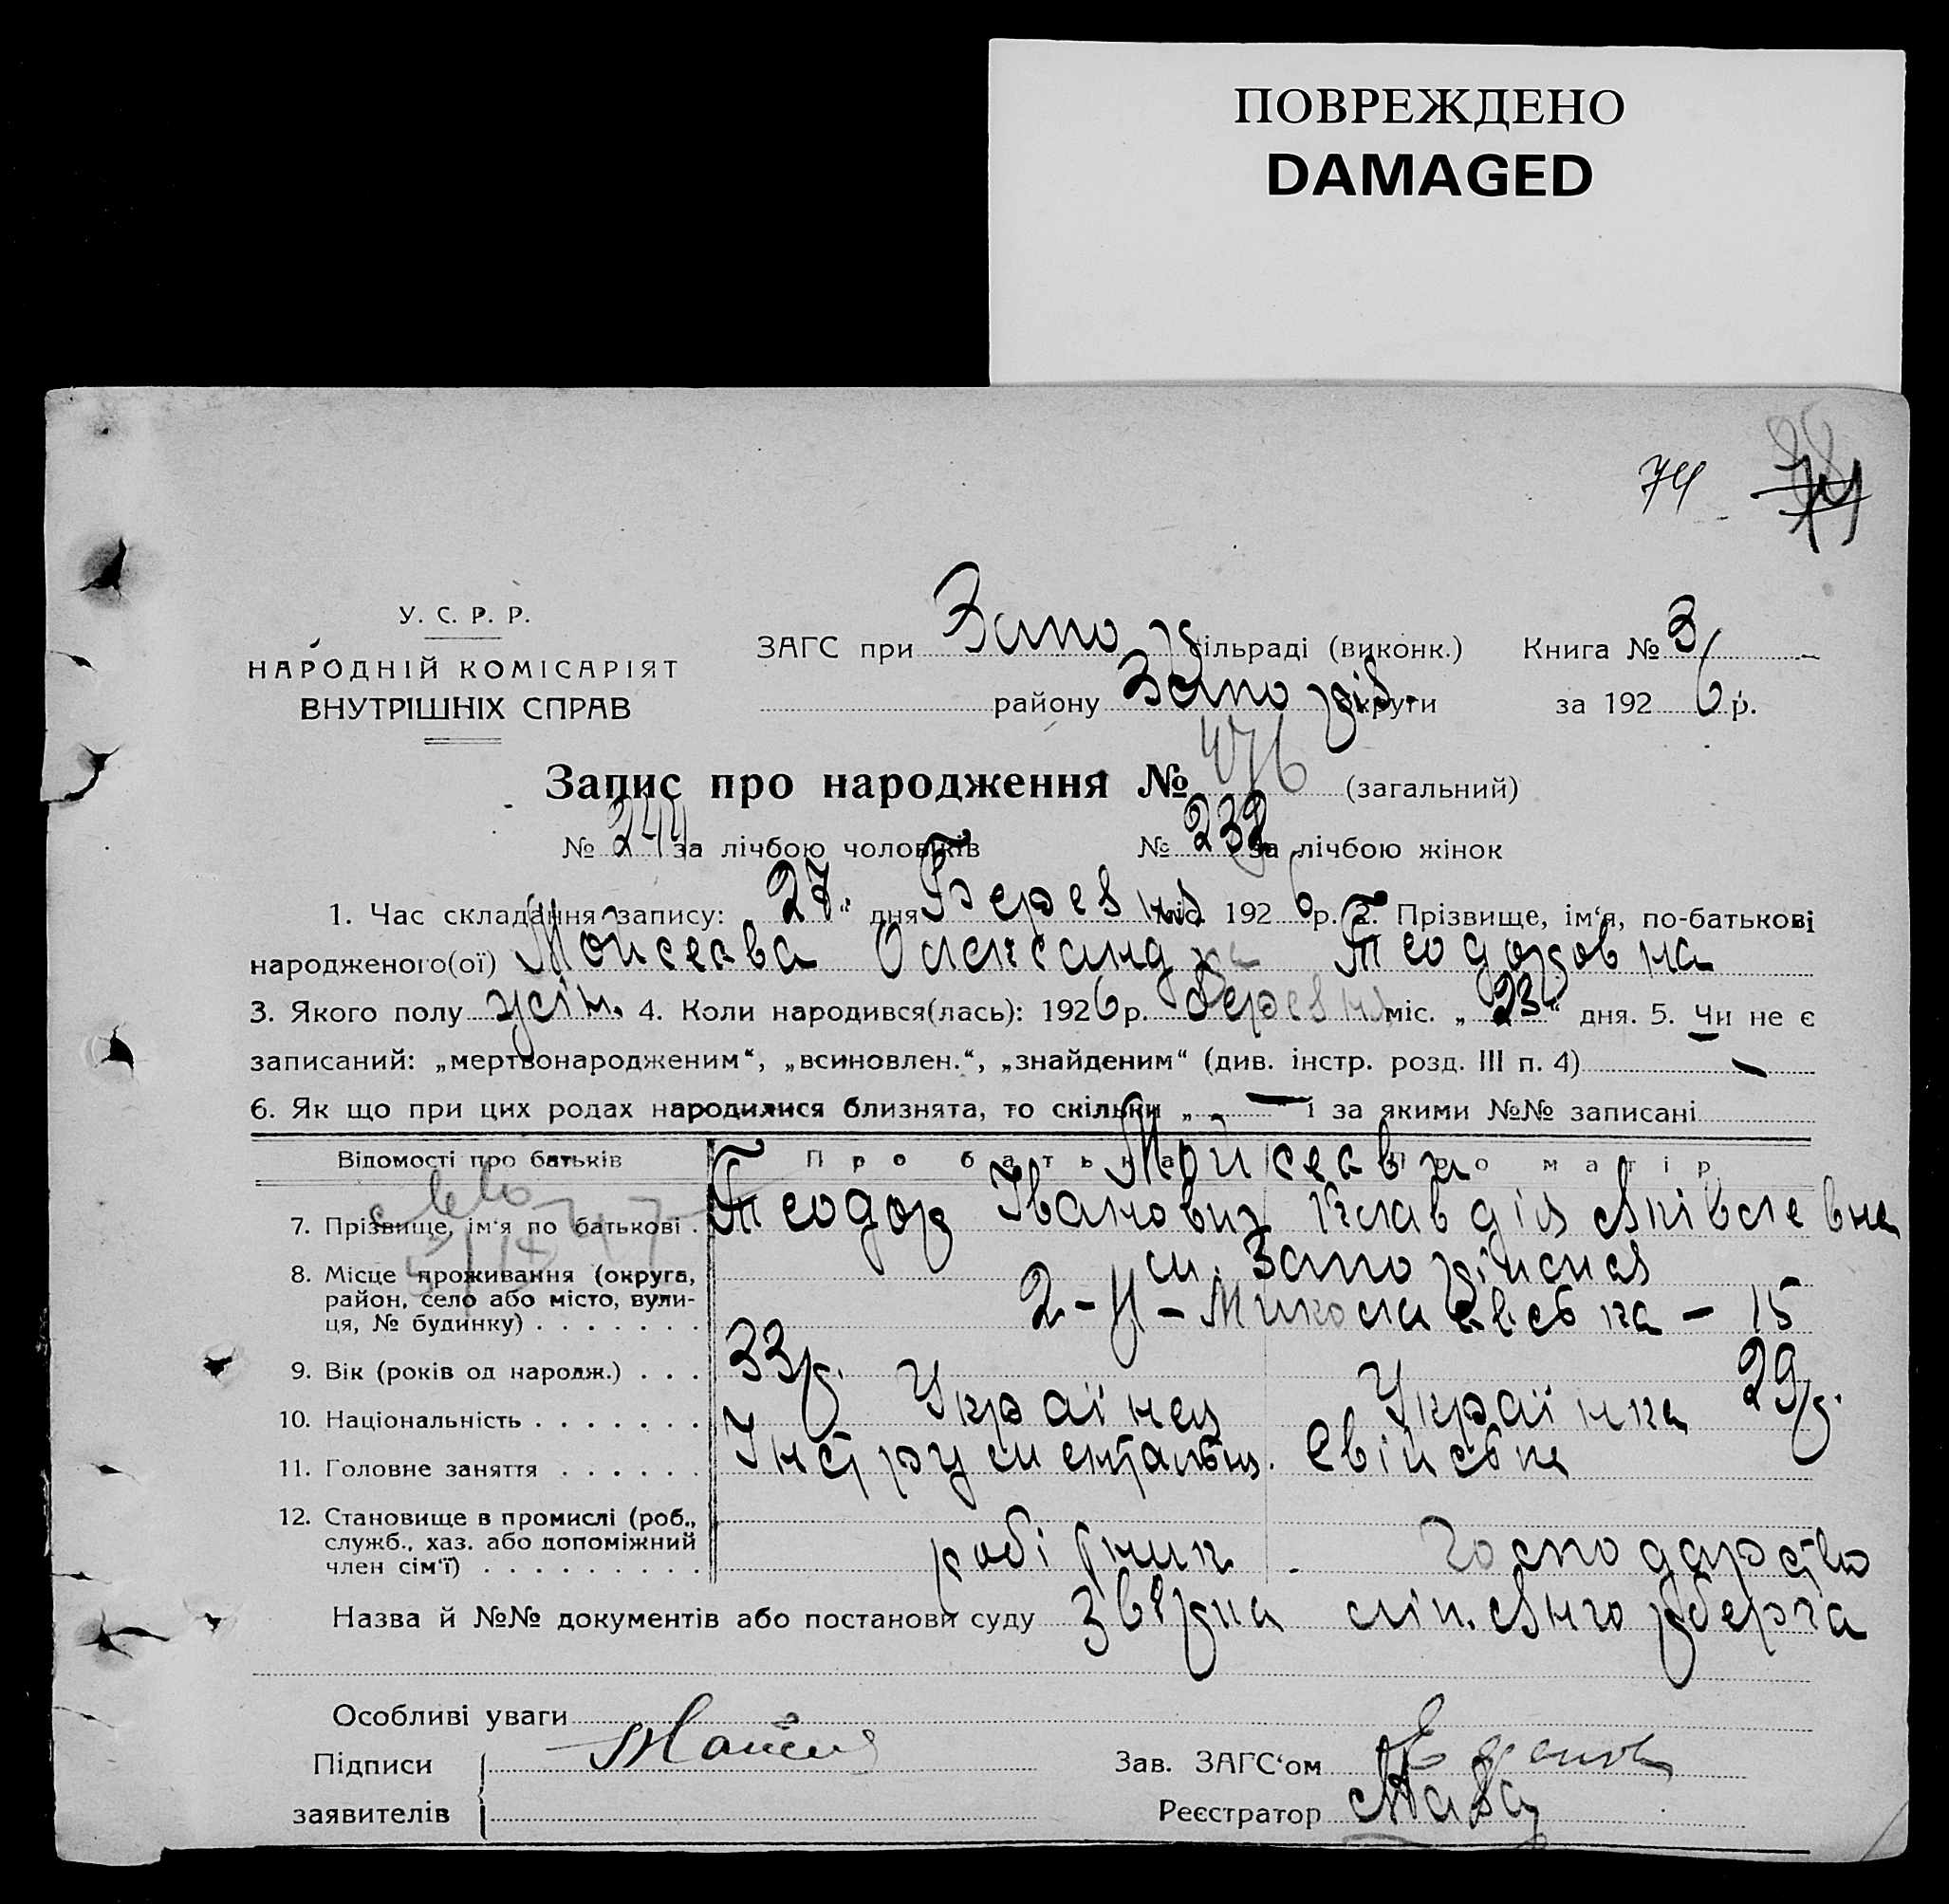 ПОВРЕЖДЕНО
DAMAGED
74 74
У. С. Р. Р.
НАРОДНІЙ КОМІСАРІЯТ
ВНУТРІШНІХ СПРАВ
ЗАГС при Запор сільраді (виконк.) Книга № 3
району Запоріз. округи за 1926 р.
Запис про народження № 476 (загальний)
№ 244 за лічбою чоловіків № 232 за лічбою жінок
1. Час складання запису: 27 „ дня Березня міс. 1926 р. 2. Прізвище, ім‘я, по-батькові
народженого(ої) Мойсеєва Олександра Теодоровна
3. Якого полу жін. 4. Коли народився(лась): 1926 р. березня міс. „ 23 “ дня. 5. Чи не є
записаний: „мертвонародженим“, „всиновлен.“, „знайденим“ (див. інстр. розд. III п. 4) —
6. Як що при цих родах народилися близнята, то скільки „ — “ і за якими №№ записані
Відомості про батьків Про батька Про матір
Мойсеєви
7. Прізвище, ім‘я по батькові . Теодор Іванович Клавдія Яківлевна
8. Місце проживання (округа, м. Запоріжжя
район, село або місто, вули- 2-й - Миколаївська - 15
ця, № будинку) . . . . . . .
9. Вік (років од народж.) . . . 33 р. 29 р.
10. Національність . . . . . . . Українец Українка
11. Головне заняття . . . . . . Інструментальн. Свійська
12. Становище в промислі (роб.,
служб., хаз. або допоміжний
член сім‘ї) . . . . . . . . . . робітник господарство
Назва й №№ документів або постанови суду
Особливі уваги
Підписи Зав. ЗАГС‘ом
заявителів Реєстратор